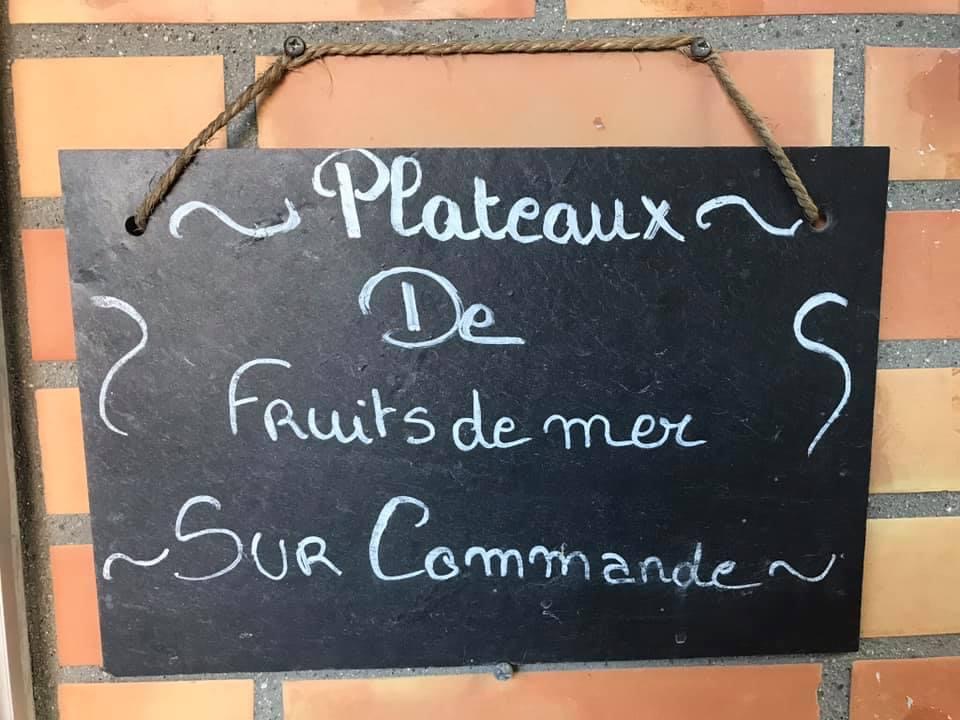 ~ Plateaux ~
De
Fruits de mer
~ Sur Commande ~